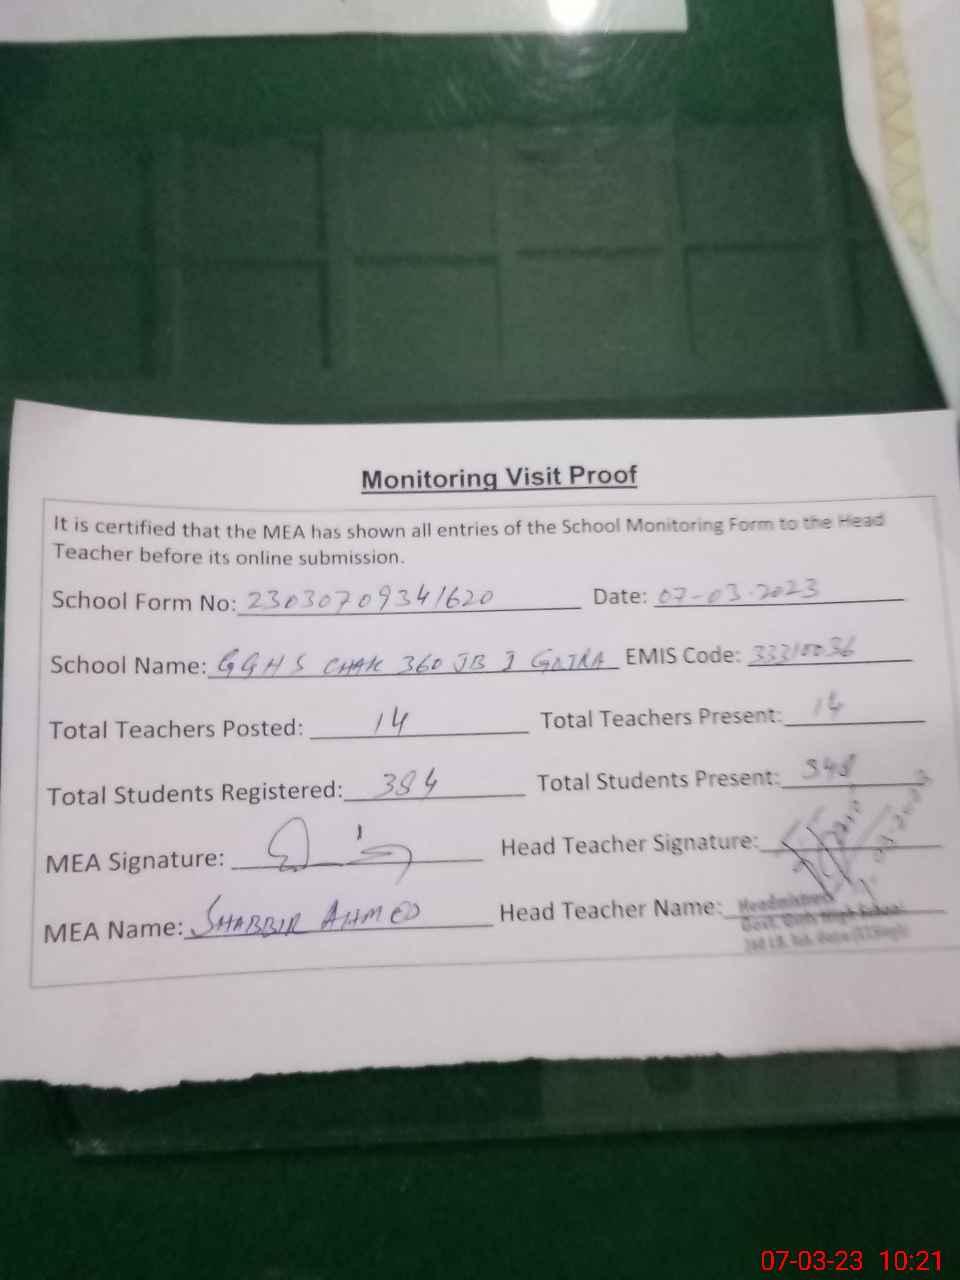 Monitoring Visit Proof
It is certified that the MEA has shown all entries of the School Monitoring Form to the Head
Teacher before its online submission.
School Form No: 23030709341620 Date: 07-03-2023
School Name: GGHS CHAK 360 JB I GOJRA EMIS Code: 33310036
Total Teachers Posted: 14 Total Teachers Present: 14
Total Students Registered: 384 Total Students Present: 348
MEA Signature: Head Teacher Signature:
MEA Name: SHABBIR AHMED Head Teacher Name: Headmistress
Govt. Girls High School
07-03-23 10:21